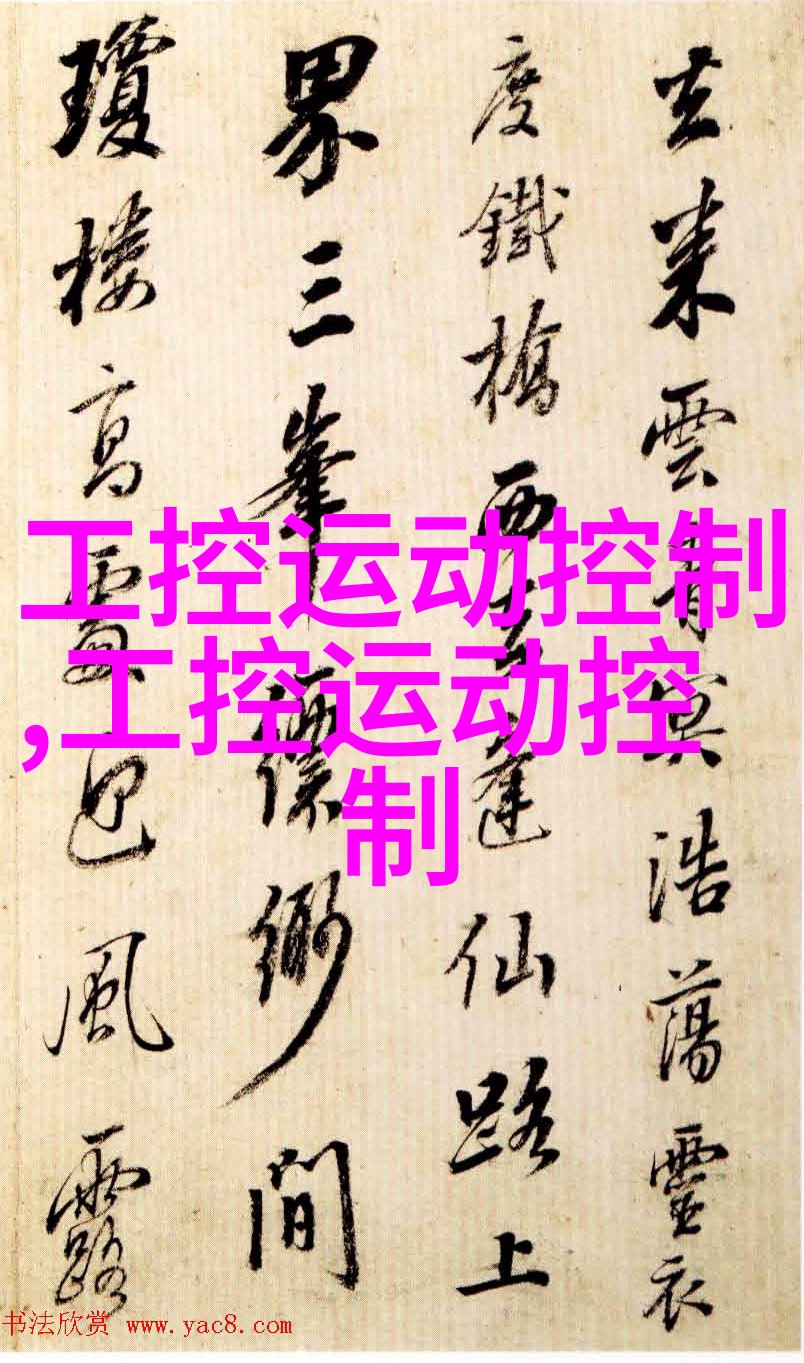 雲青冥浩蕩靈衣
度鐵橋西去逢仙路上
界三峯縹緲間
瓊樓高風露
工控运动控制
,工控运动控
制
书法欣赏 www.yac8.com